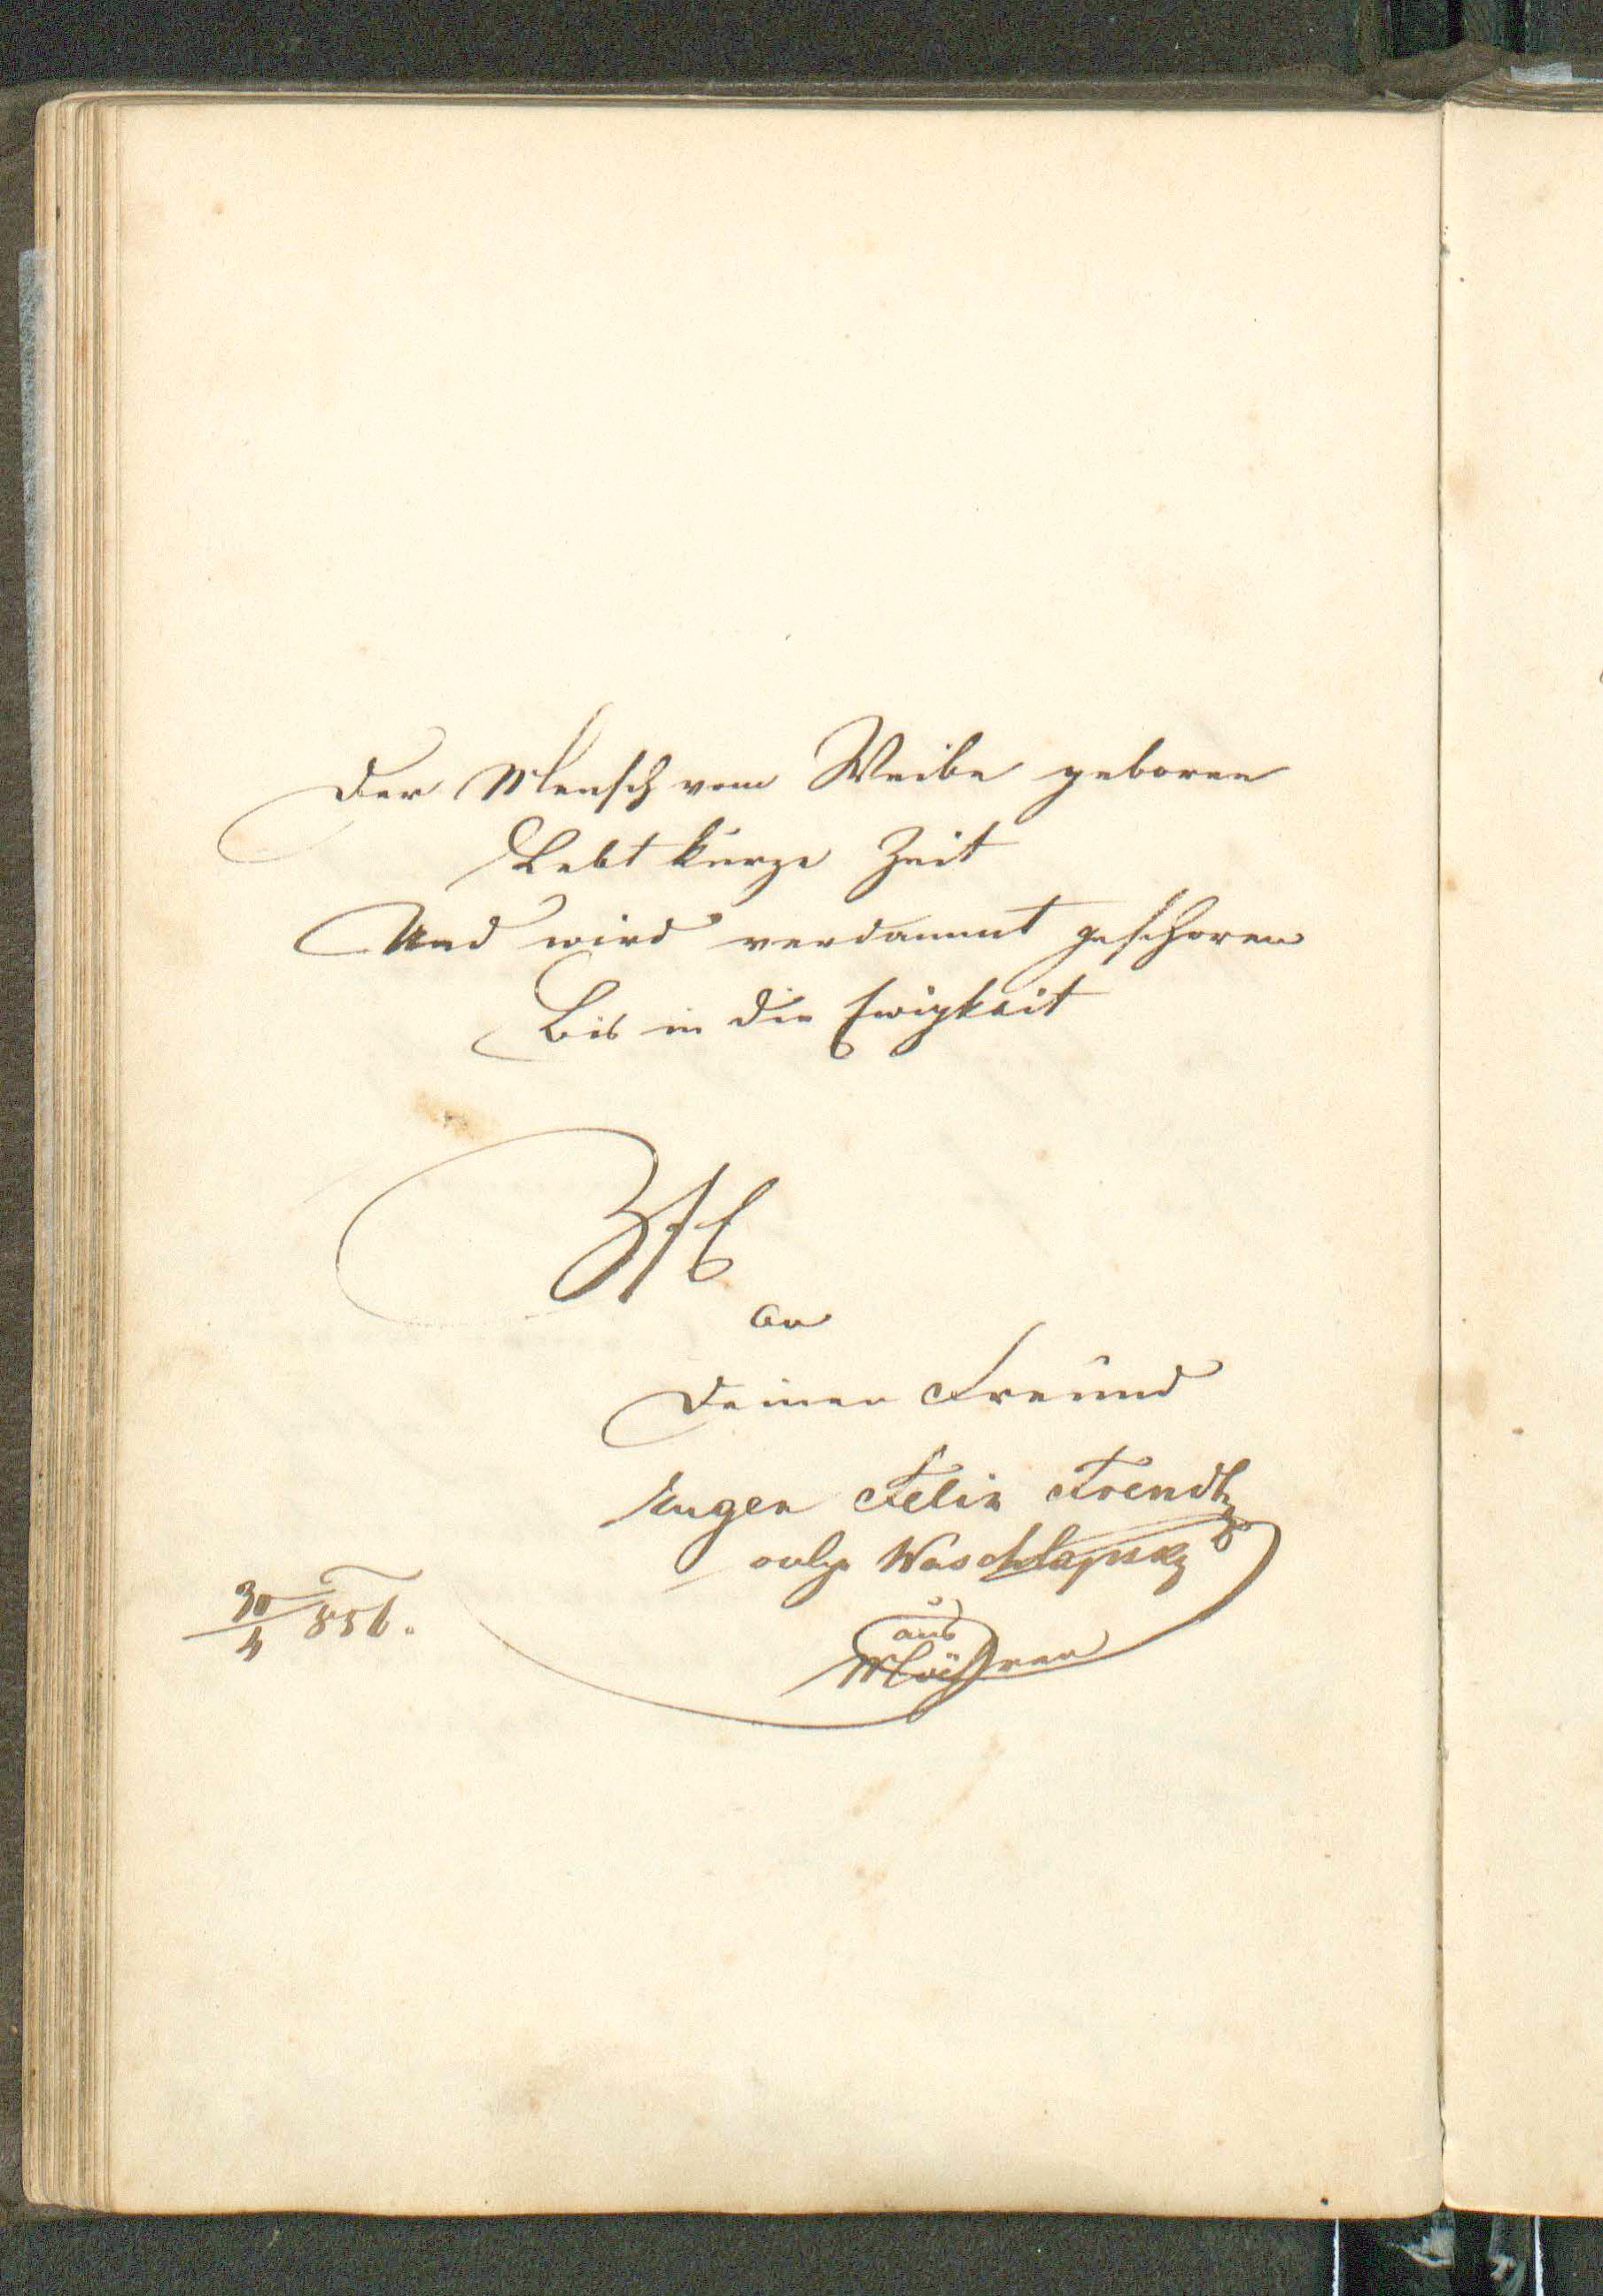 Der Mensch vom Weibe geboren
Lebt kurze Zeit
Und wird verdammt geschoren
Bis in die Ewigkeit
an
Deinen Freund
Eugen Felix
vulgo Waschlapsky
aus
Mähren
30/4 856.